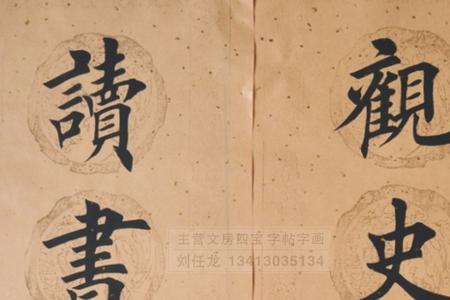 觀史
讀書
主营文房四宝 字帖字画
刘任龙 13413035134